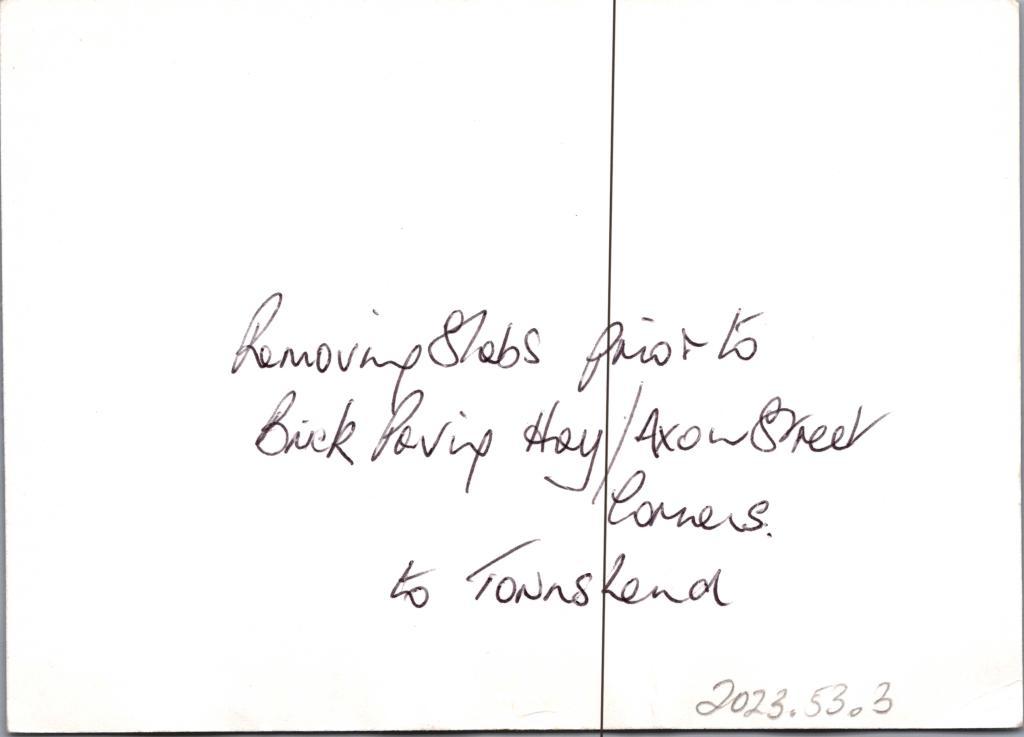 Removing Slabs prior to
Brick Paving Hay/Axon Street
Corners.
to Townshend
2023.53.3